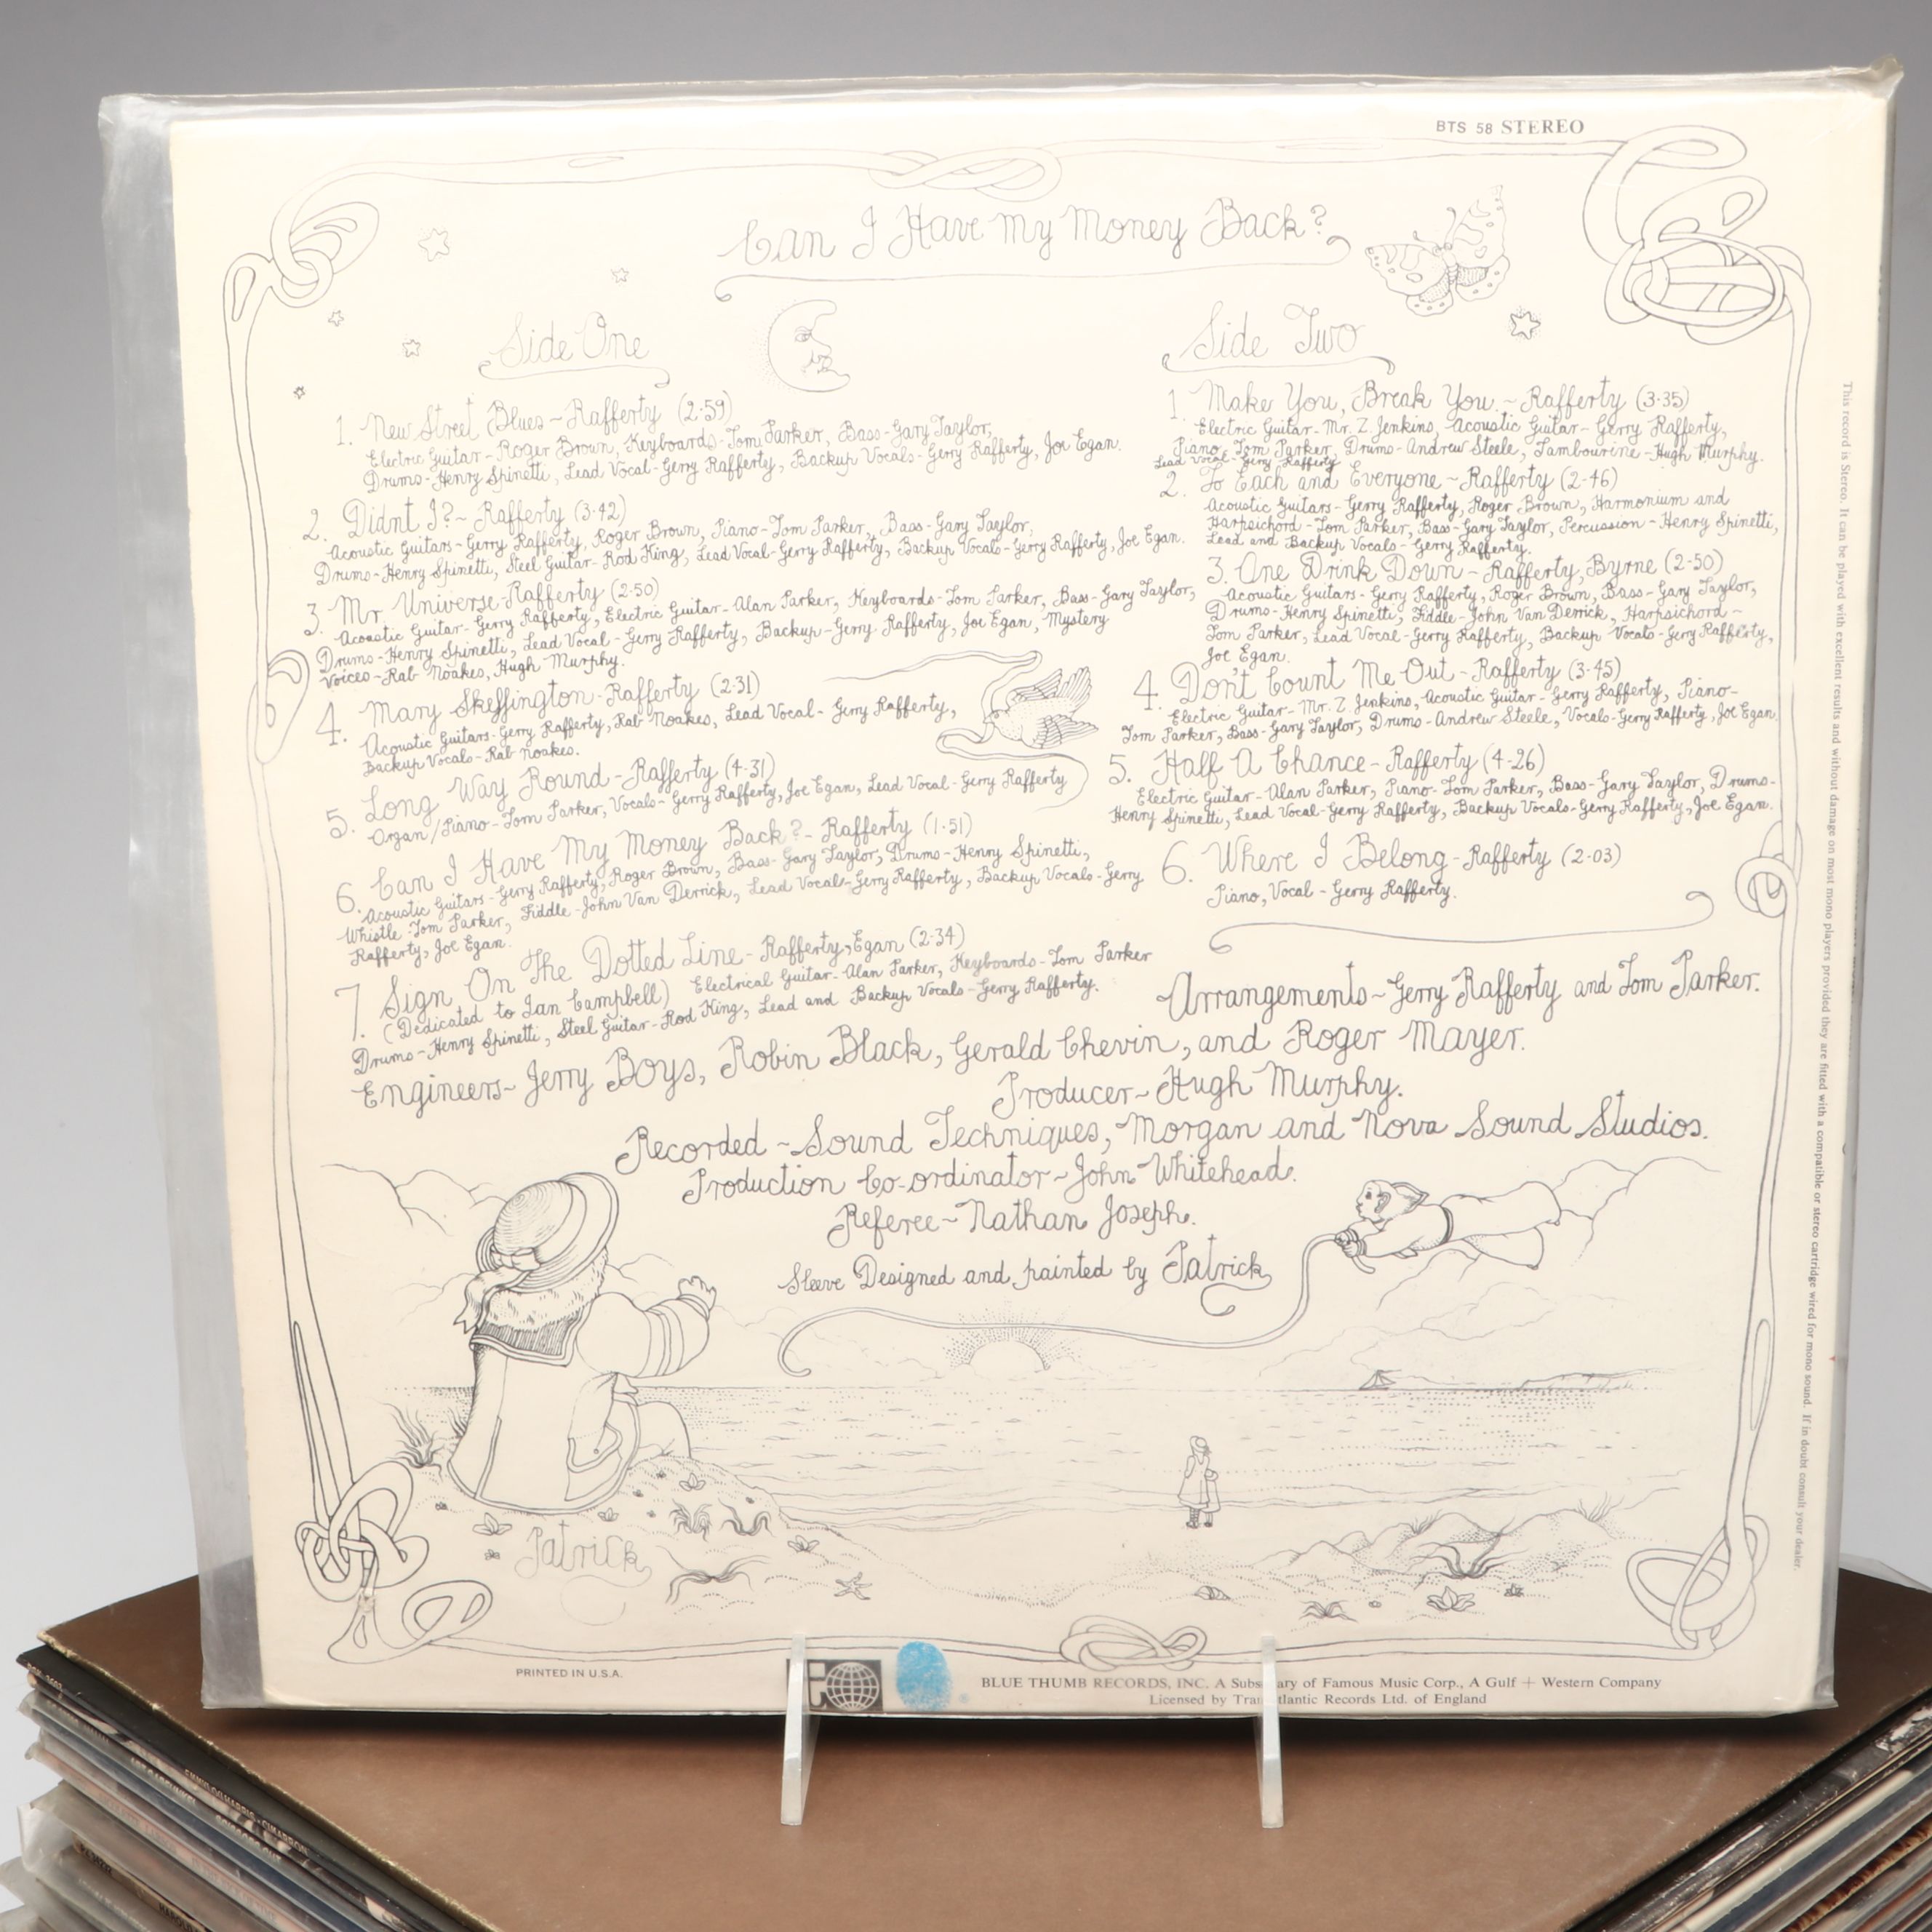 BTS 58 STEREO
Can I Have My Money Back?
Side One
1. New Street Blues ~ Rafferty (2·59)
Electric Guitar - Roger Brown, Keyboards - Tom Parker, Bass - Gary Taylor,
Drums - Henry Spinetti, Lead Vocal - Gerry Rafferty, Backup Vocals - Gerry Rafferty, Joe Egan.
2. Didnt I? ~ Rafferty (3·42)
Acoustic Guitars - Gerry Rafferty, Roger Brown, Piano - Tom Parker, Bass - Gary Taylor,
Drums - Henry Spinetti, Steel Guitar - Rod King, Lead Vocal - Gerry Rafferty, Backup Vocals - Gerry Rafferty, Joe Egan.
3. Mr Universe - Rafferty (2·50)
Acoustic Guitar - Gerry Rafferty, Electric Guitar - Alan Parker, Keyboards - Tom Parker, Bass - Gary Taylor,
Drums - Henry Spinetti, Lead Vocal - Gerry Rafferty, Backup - Gerry Rafferty, Joe Egan, Mystery
Voices - Rab Noakes, Hugh Murphy.
4. Mary Skeffington - Rafferty (2·31)
Acoustic Guitars - Gerry Rafferty, Rab Noakes, Lead Vocal - Gerry Rafferty,
Backup Vocals - Rab Noakes.
5. Long Way Round - Rafferty (4·31)
Organ / Piano - Tom Parker, Vocals - Gerry Rafferty, Joe Egan, Lead Vocal - Gerry Rafferty
6. Can I Have My Money Back? - Rafferty (1·51)
Acoustic Guitars - Gerry Rafferty, Roger Brown, Bass - Gary Taylor, Drums - Henry Spinetti,
Whistle - Tom Parker, Fiddle - John Van Derrick, Lead Vocal - Gerry Rafferty, Backup Vocals - Gerry
Rafferty, Joe Egan.
7. Sign On The Dotted Line - Rafferty, Egan (2·34)
(Dedicated to Ian Campbell) Electrical Guitar - Alan Parker, Keyboards - Tom Parker
Drums - Henry Spinetti, Steel Guitar - Rod King, Lead and Backup Vocals - Gerry Rafferty.
Side Two
1. Make You, Break You. ~ Rafferty (3·35)
Electric Guitar - Mr. Z. Jenkins, Acoustic Guitar - Gerry Rafferty,
Piano - Tom Parker, Drums - Andrew Steele, Tambourine - Hugh Murphy.
Lead Vocal - Gerry Rafferty
2. To Each and Everyone ~ Rafferty (2·46)
Acoustic Guitars - Gerry Rafferty, Roger Brown, Harmonium and
Harpsichord - Tom Parker, Bass - Gary Taylor, Percussion - Henry Spinetti,
Lead and Backup Vocals - Gerry Rafferty.
3. One Drink Down - Rafferty, Byrne (2·50)
Acoustic Guitars - Gerry Rafferty, Roger Brown, Bass - Gary Taylor,
Drums - Henry Spinetti, Fiddle - John Van Derrick, Harpsichord ~
Tom Parker, Lead Vocal - Gerry Rafferty, Backup Vocals - Gerry Rafferty,
Joe Egan.
4. Don't Count Me Out - Rafferty (3·45)
Electric Guitar - Mr. Z Jenkins, Acoustic Guitar - Gerry Rafferty, Piano -
Tom Parker, Bass - Gary Taylor, Drums - Andrew Steele, Vocals - Gerry Rafferty, Joe Egan
5. Half A Chance - Rafferty (4·26)
Electric Guitar - Alan Parker, Piano - Tom Parker, Bass - Gary Taylor, Drums -
Henry Spinetti, Lead Vocal - Gerry Rafferty, Backup Vocals - Gerry Rafferty, Joe Egan.
6. Where I Belong - Rafferty (2·03)
Piano, Vocal - Gerry Rafferty.
Arrangements ~ Gerry Rafferty and Tom Parker.
Engineers ~ Jerry Boys, Robin Black, Gerald Chevin, and Roger Mayer.
Producer ~ Hugh Murphy.
Recorded ~ Sound Techniques, Morgan and Nova Sound Studios.
Production Co-ordinator ~ John Whitehead.
Referee ~ Nathan Joseph.
Sleeve Designed and painted by Patrick
Patrick
This record is Stereo. It can be played with excellent results and without damage on most mono players provided they are fitted with a compatible or stereo cartridge wired for mono sound. If in doubt consult your dealer.
PRINTED IN U.S.A.
t
®
BLUE THUMB RECORDS, INC. A Subs ary of Famous Music Corp., A Gulf + Western Company
Licensed by Tra tlantic Records Ltd. of England
EMMYLOU HARRIS CIMARRON